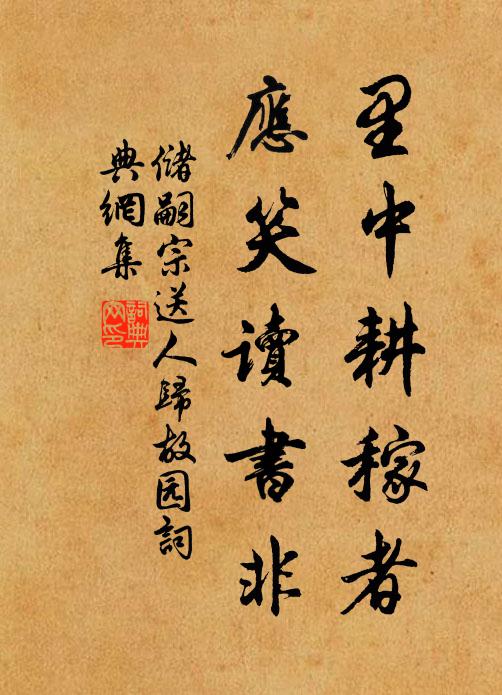 里中耕稼者
應笑讀書非
儲嗣宗送人歸故园詞
典網集
詞典
网印